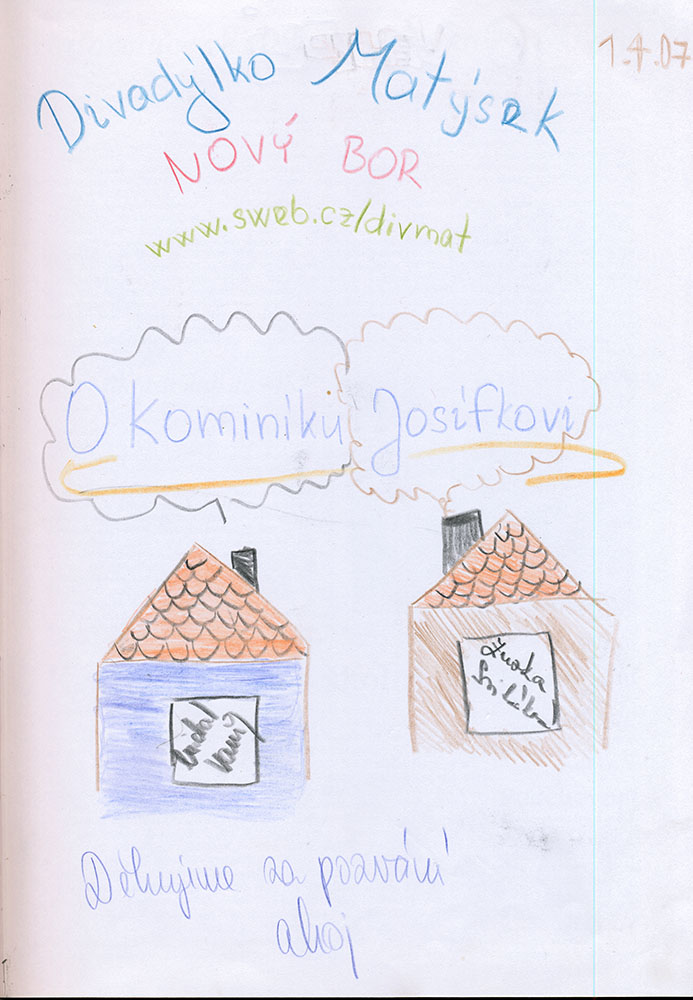 1.4.07
Divadýlko Matýsek
NOVÝ BOR
www.sweb.cz/divmat
O kominíku Josífkovi
Zuzka
Děkujeme za pozvání
ahoj